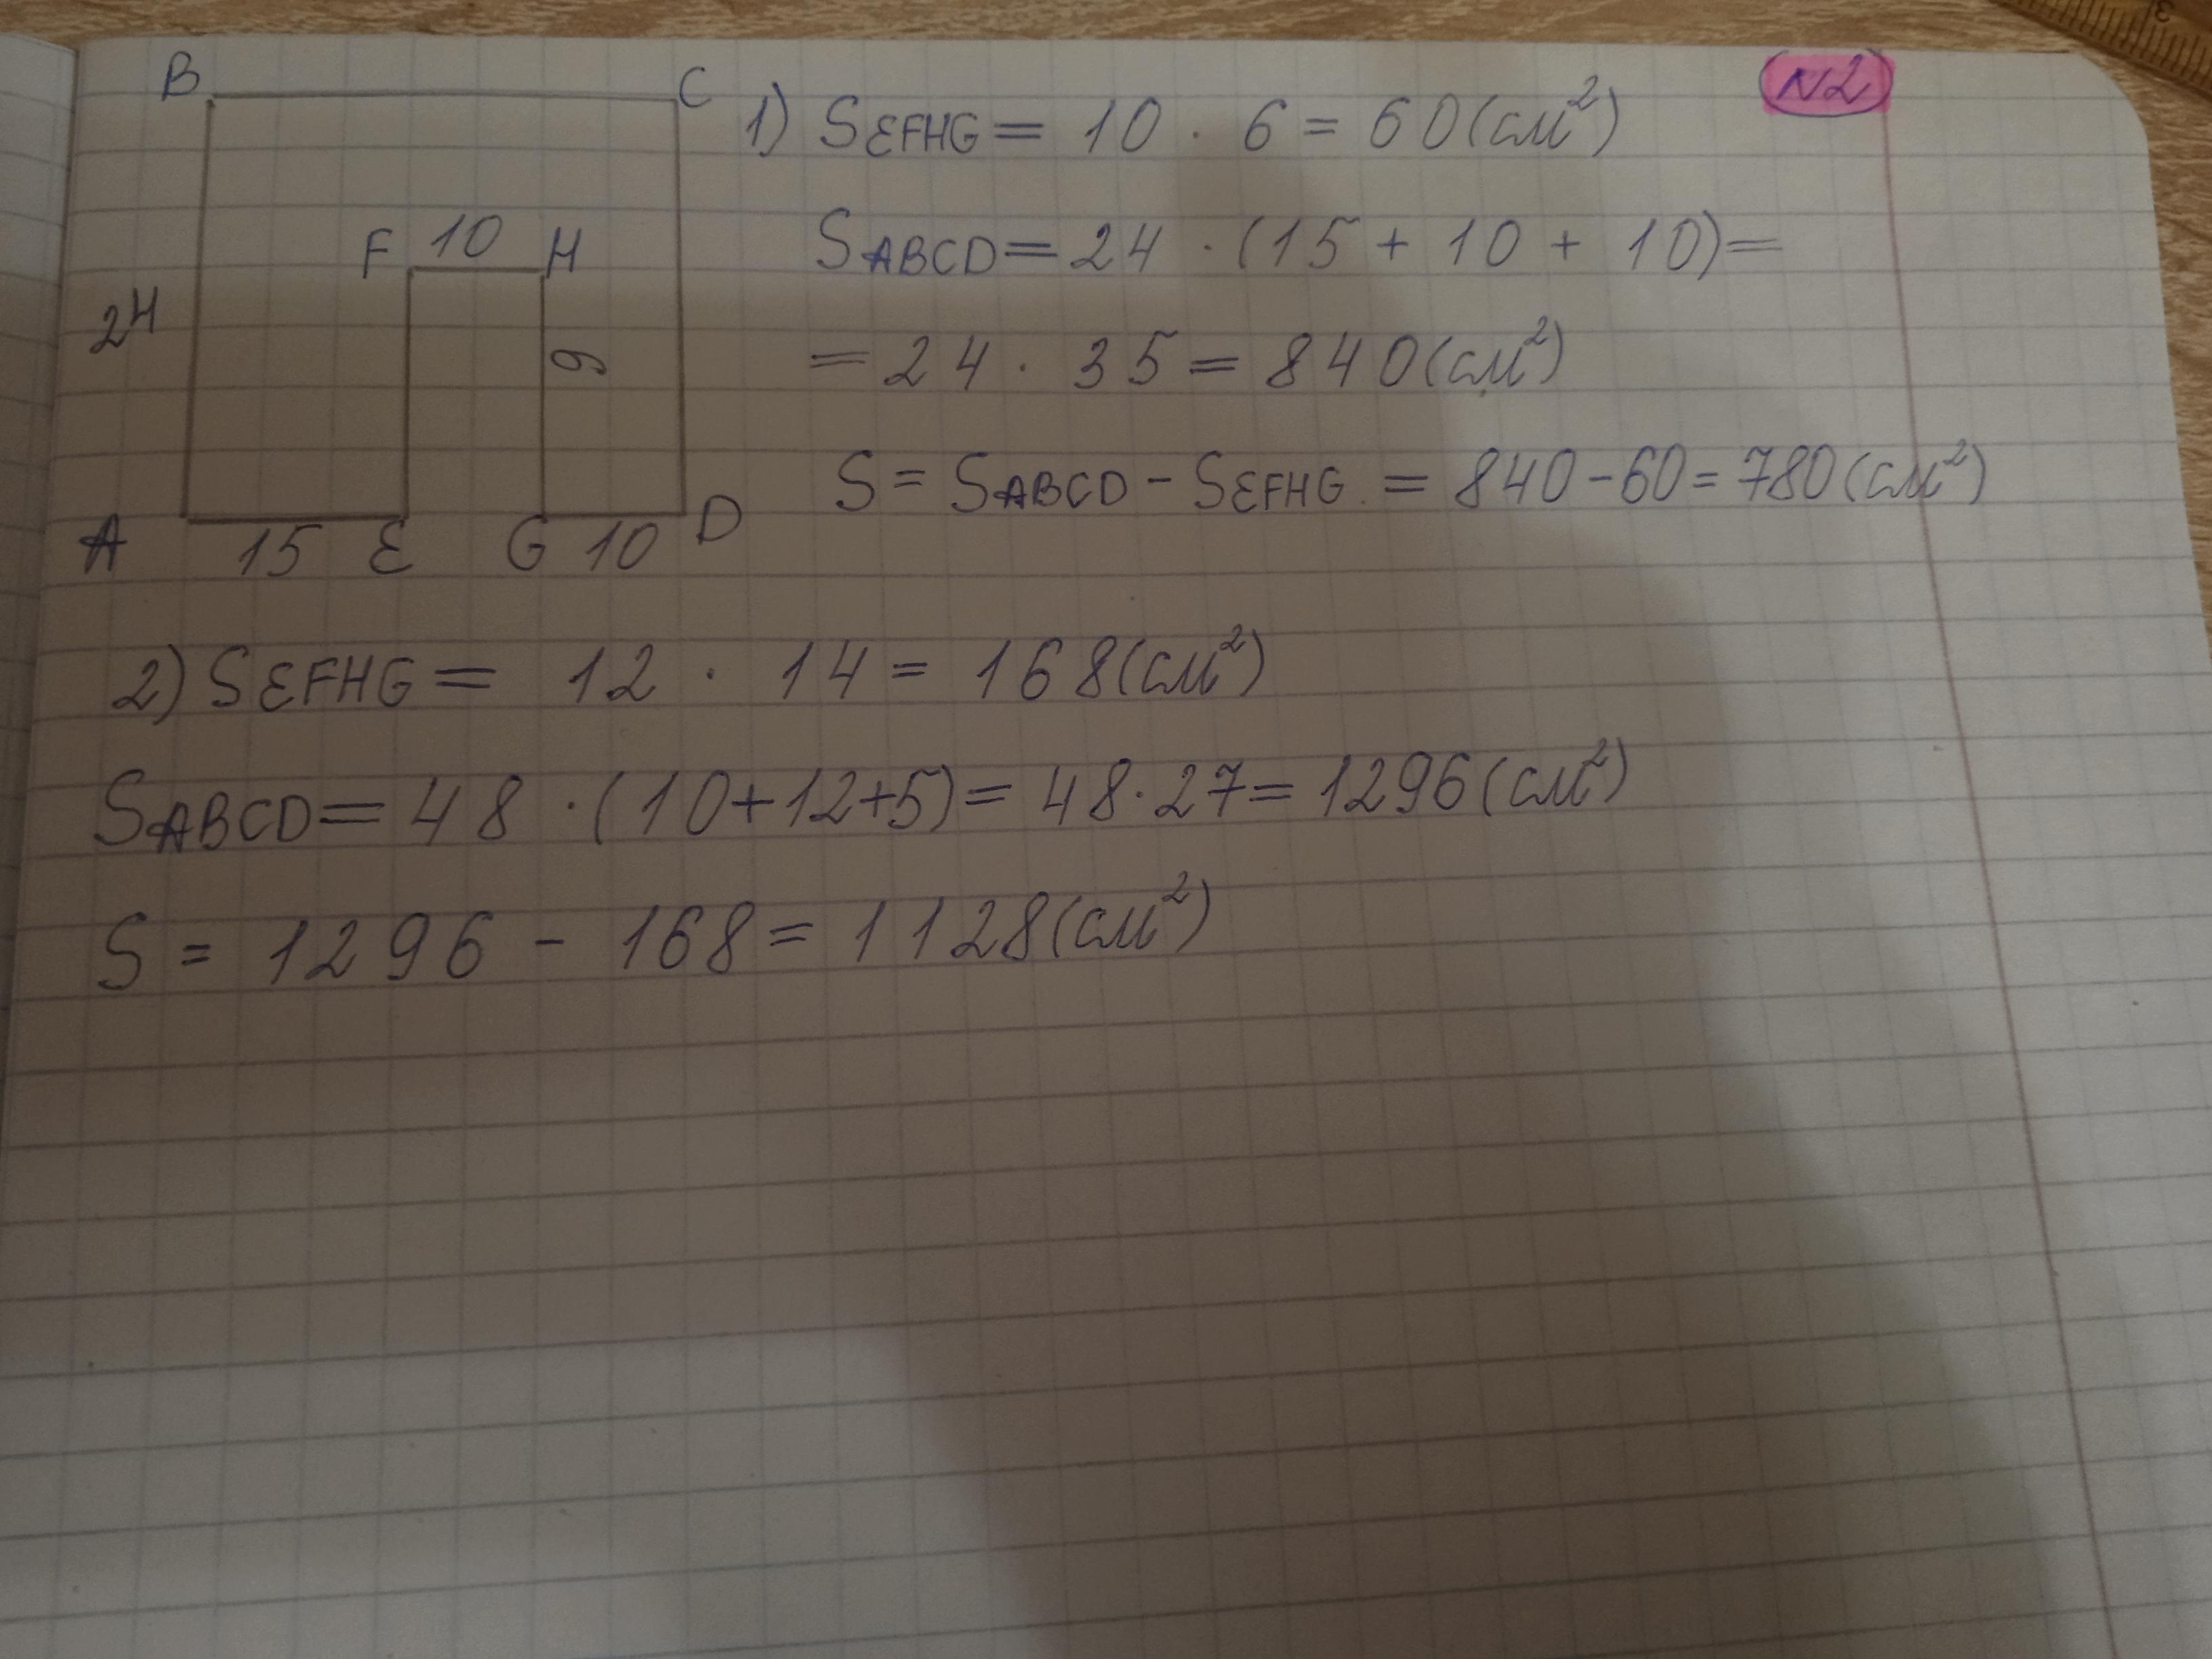 N2
B C
F 10 H
24
6
A 15 E G 10 D
1) SEFHG = 10 · 6 = 60 (см²)
SABCD = 24 · (15 + 10 + 10) =
= 24 · 35 = 840 (см²)
S = SABCD - SEFHG = 840 - 60 = 780 (см²)
2) SEFHG = 12 · 14 = 168 (см²)
SABCD = 48 · (10+12+5) = 48 · 27 = 1296 (см²)
S = 1296 - 168 = 1128 (см²)
3